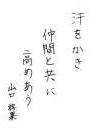 汗をかき
仲間と共に
高めあう
山口